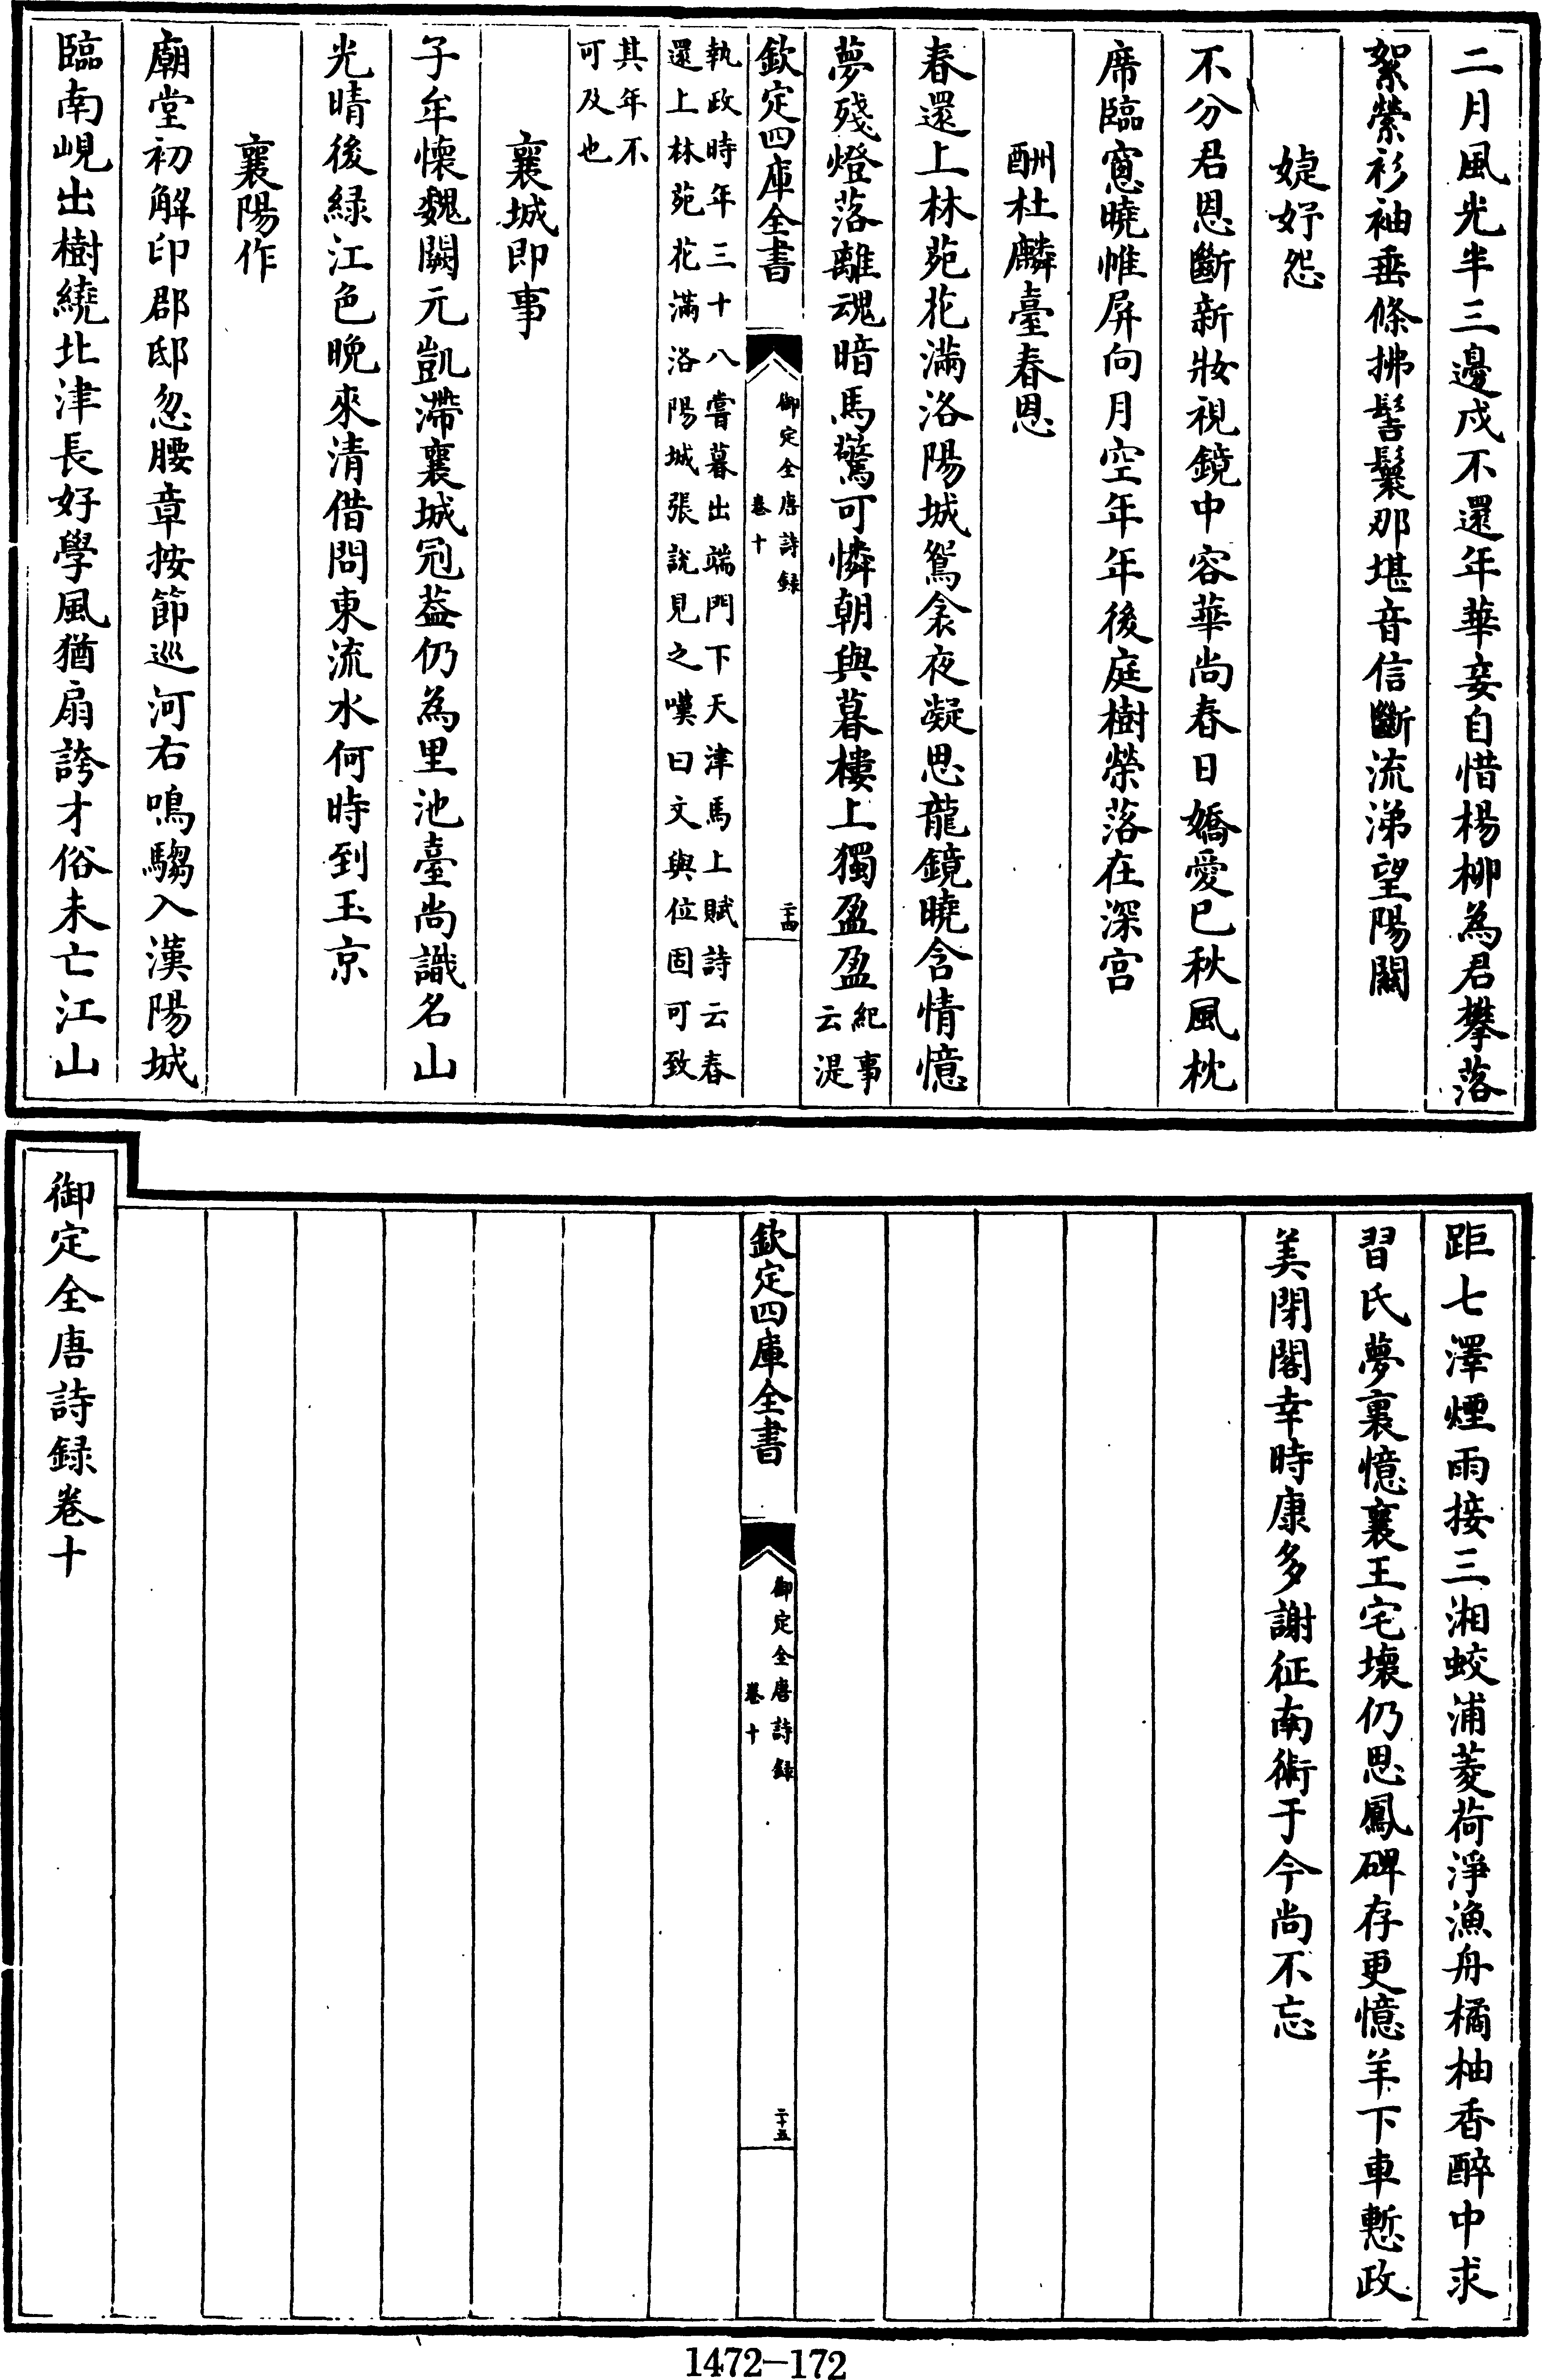 二月風光半三邊戍不還年華妾自惜楊柳為君攀落
絮縈衫袖垂條拂髻鬟那堪音信斷流涕望陽關
婕妤怨
不分君恩斷新妝視鏡中容華尚春日嬌愛已秋風枕
席臨窗曉帷屏向月空年年後庭樹榮落在深宮
酬杜麟臺春思
春還上林苑花滿洛陽城鴛衾夜凝思龍鏡曉含情憶
夢殘燈落離魂暗馬驚可憐朝與暮樓上獨盈盈
紀事
云湜
欽定四庫全書
御定全唐詩録
卷十
二十四
執政時年三十八嘗暮出端門下天津馬上賦詩云春
還上林苑花滿洛陽城張說見之嘆曰文與位固可致
其年不
可及也
襄城即事
子牟懷魏闕元凱滯襄城冠葢仍為里池臺尚識名山
光晴後緑江色晚來清借問東流水何時到玉京
襄陽作
廟堂初解印郡邸忽腰章按節巡河右鳴騶入漢陽城
臨南峴出樹繞北津長好學風猶扇誇才俗未亡江山
距七澤煙雨接三湘蛟浦菱荷淨漁舟橘柚香醉中求
習氏夢裏憶襄王宅壞仍思鳳碑存更憶羊下車慙政
美閉閣幸時康多謝征南術于今尚不忘
欽定四庫全書
御定全唐詩録
卷十
二十五
御定全唐詩録卷十
1472-172